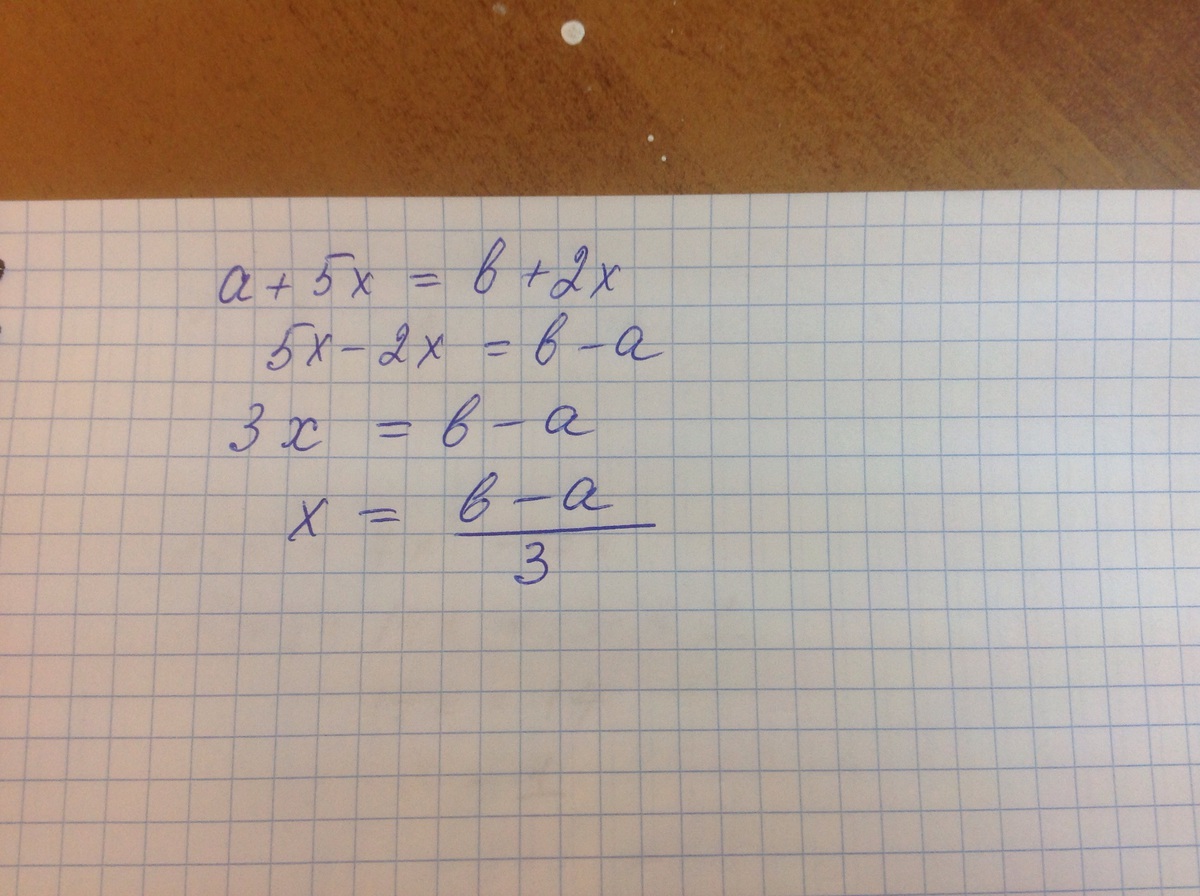 a + 5x = b + 2x
5x - 2x = b - a
3x = b - a
x = \frac{b - a}{3}